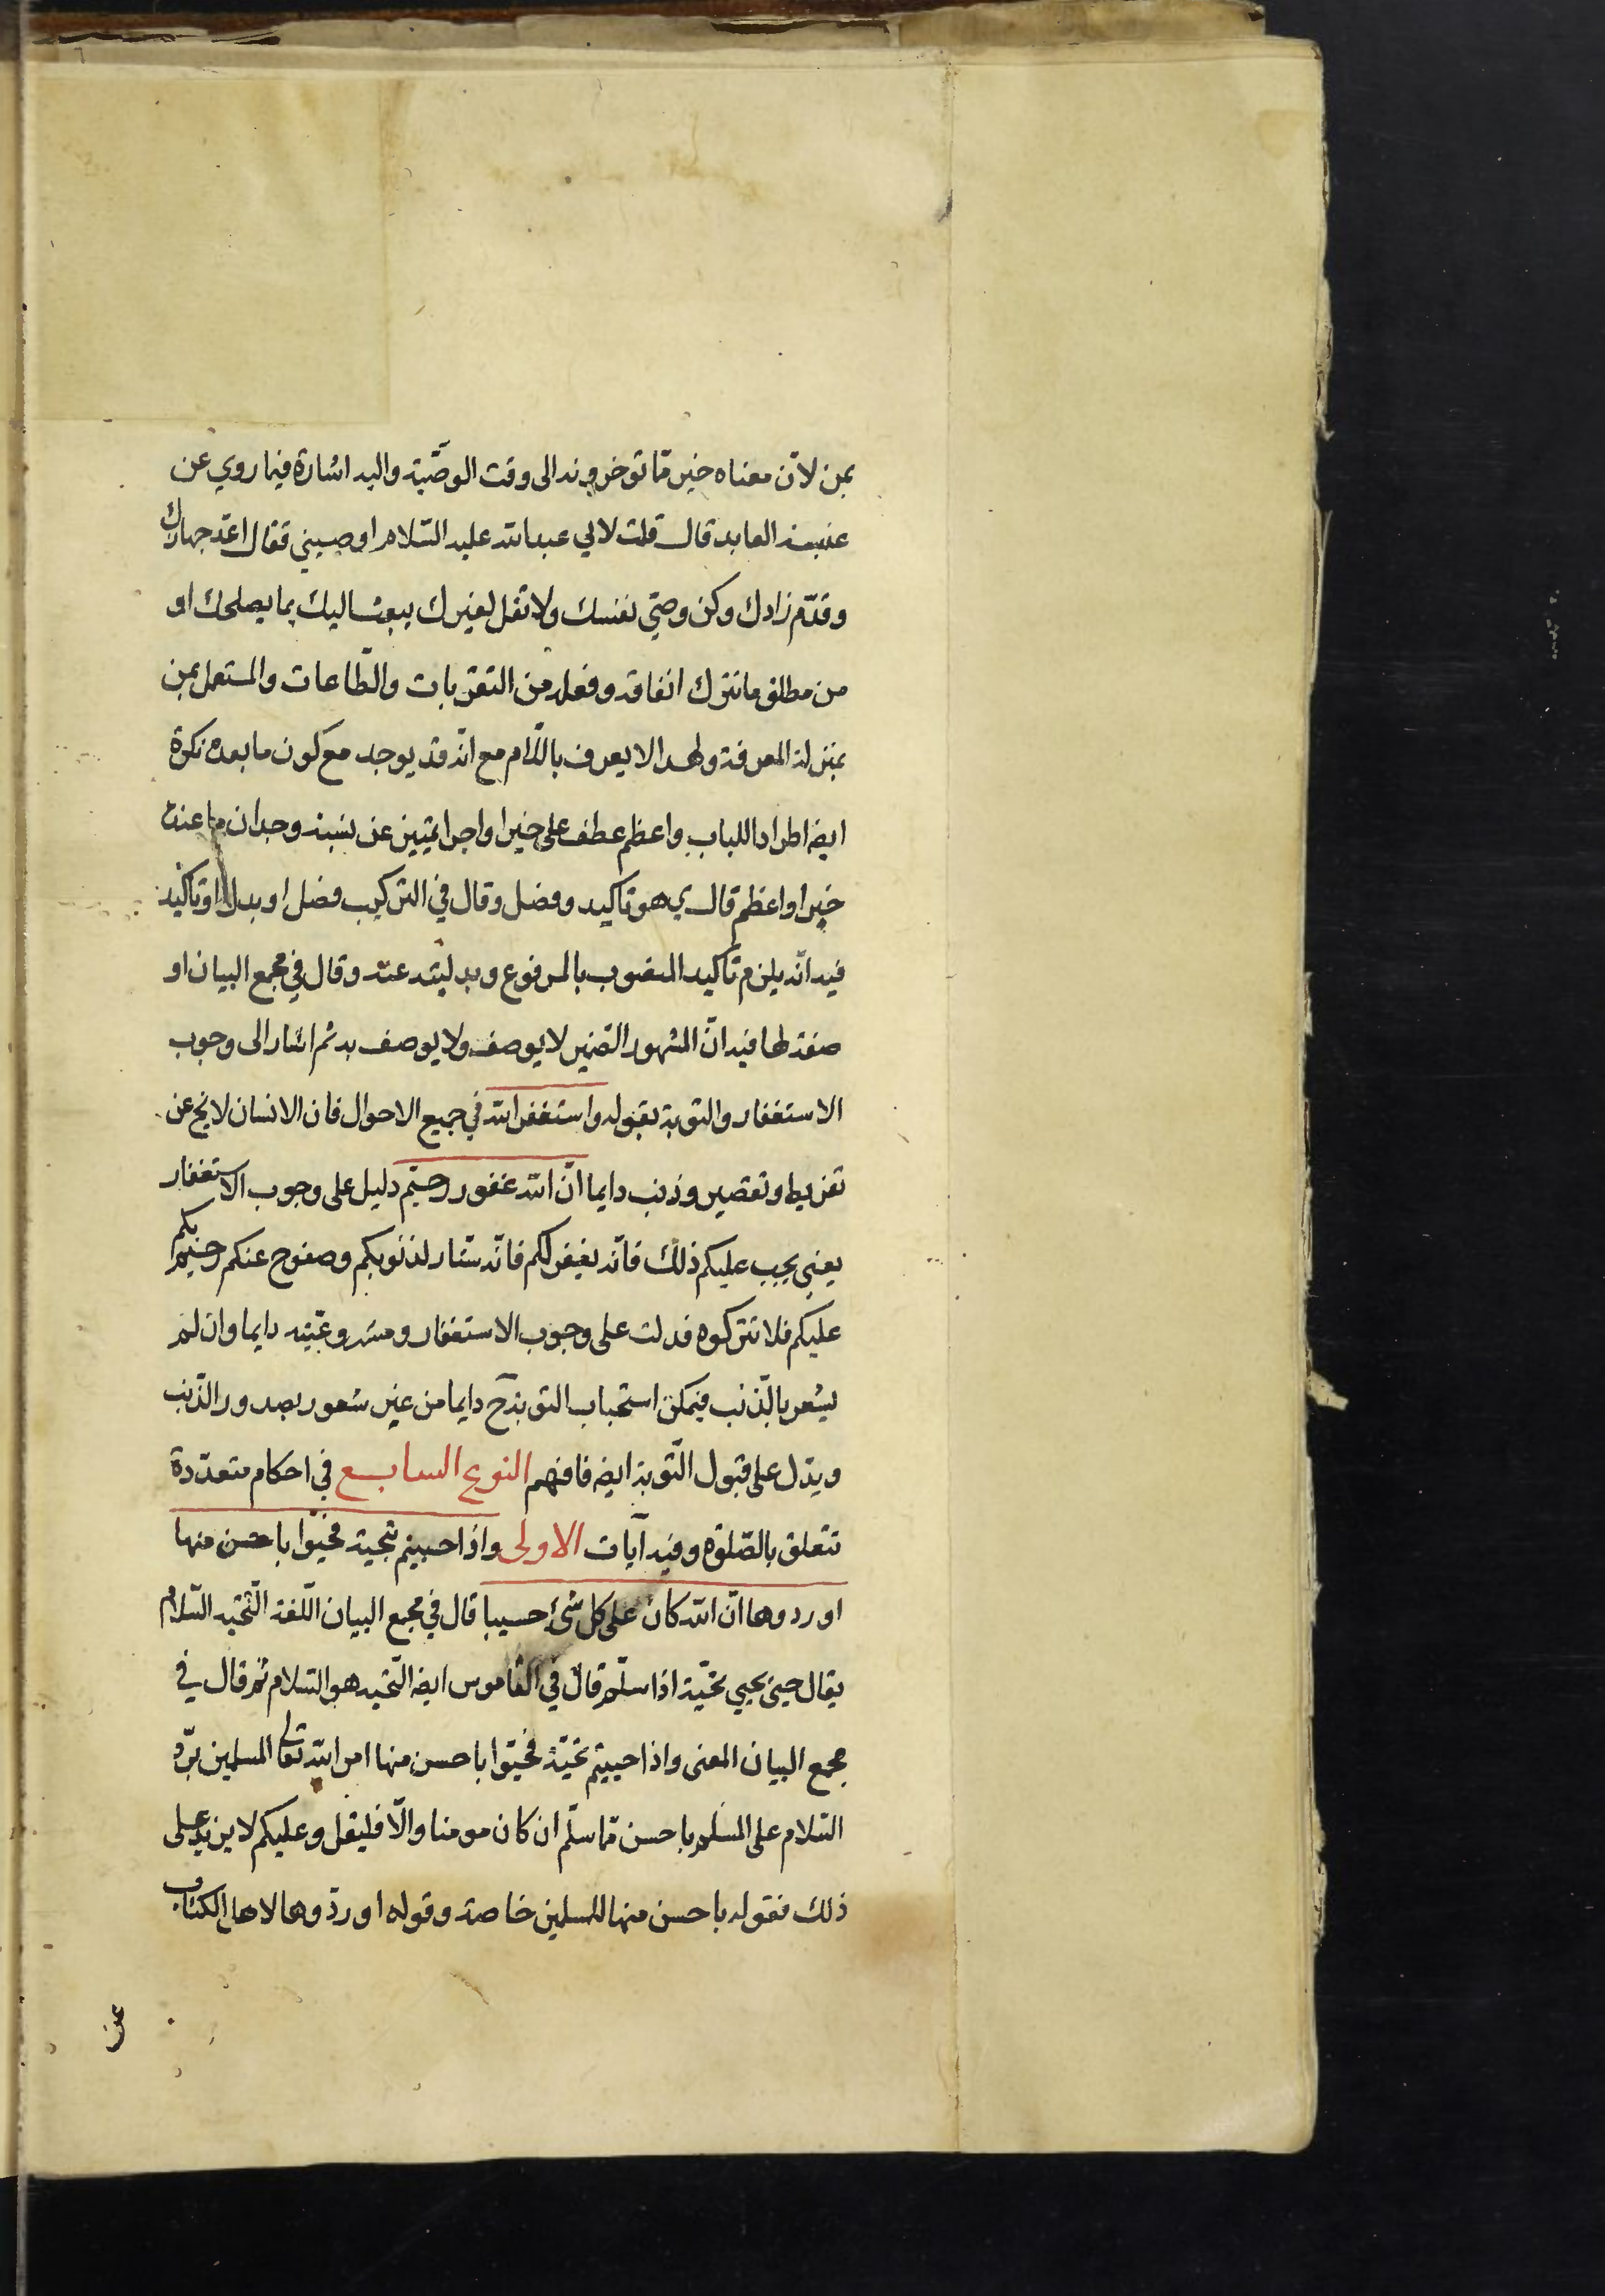 بمن لانّ معناه خير ممّا توخرونه الى وقت الوصّية واليه اشارة فيما روي عن
عنبسة العابد قال قلت لابي عبدالله عليه السّلام اوصيني فقال اعدّ جهازك
وقدّم زادك وكن وصيّ نفسك ولا تقل لغيرك يبعث اليك بما يصلحك او
من مطلق ما تترك انفاقه وفعله من التقربات والطّاعات والمستعمل بمن
بمنزلة المعرفة ولهذا لا يعرف باللّام مع انّه قد يوجد مع كون ما بعده نكرة
ايضا طرادا للباب واعظم عطف على خيرا واجرا تميّيز عن نسبة وجدان ما عنده
خيرا واعظم قال ي هو تاكيد وفصل وقال في التركيب فصل او بدل او تاكيد
فيه انّه يلزم تاكيد المنصوب بالمرفوع وبدليّته عنه وقال في مجمع البيان او
صفة لها فيه انّ المشهور الضمير لا يوصف ولا يوصف به ثم اشار الى وجوب
الاستغفار والتوبة بقوله واستغفروا الله في جميع الاحوال فان الانسان لا يخ عن
تفريط وتقصير وذنب دايما انّ الله غفور رحيم دليل على وجوب الاستغفار
يعني يجب عليكم ذلك فانّه يغفر لكم فانّه ستّار لذنوبكم وصفوح عنكم رحيم بكم
عليكم فلا تتركوه فدلت على وجوب الاستغفار ومشروعيّته دايما وان لم
يشعر بالّذنب فيمكن استحباب التوبة ح دايما من غير شعور بصدور الذّنب
ويدّل على قبول التّوبة ايضا فافهم النوع السابع في احكام متعدّدة
تتعلق بالصّلوة وفيه آيات الاولى واذا حييتم بتحية فحيّوا باحسن منها
او ردوها انّ الله كان على كل شئ حسيبا قال في مجمع البيان اللّغة التّحيه السّلام
يقال حيى يحيي تحيّة اذا سلّم قال في القاموس ايضا التّحيه هو السّلام ثم قال في
مجمع البيان المعنى واذا حييتم بتحيّة فحيّوا باحسن منها امر الله تعالى المسلمين بردّ
السّلام على المسلم باحسن ممّا سلّم ان كان مومنا والّا فليقل وعليكم لا يزيد على
ذلك فقوله باحسن منها للمسلمين خاصة وقوله او ردّوها لاهل الكتاب
عن